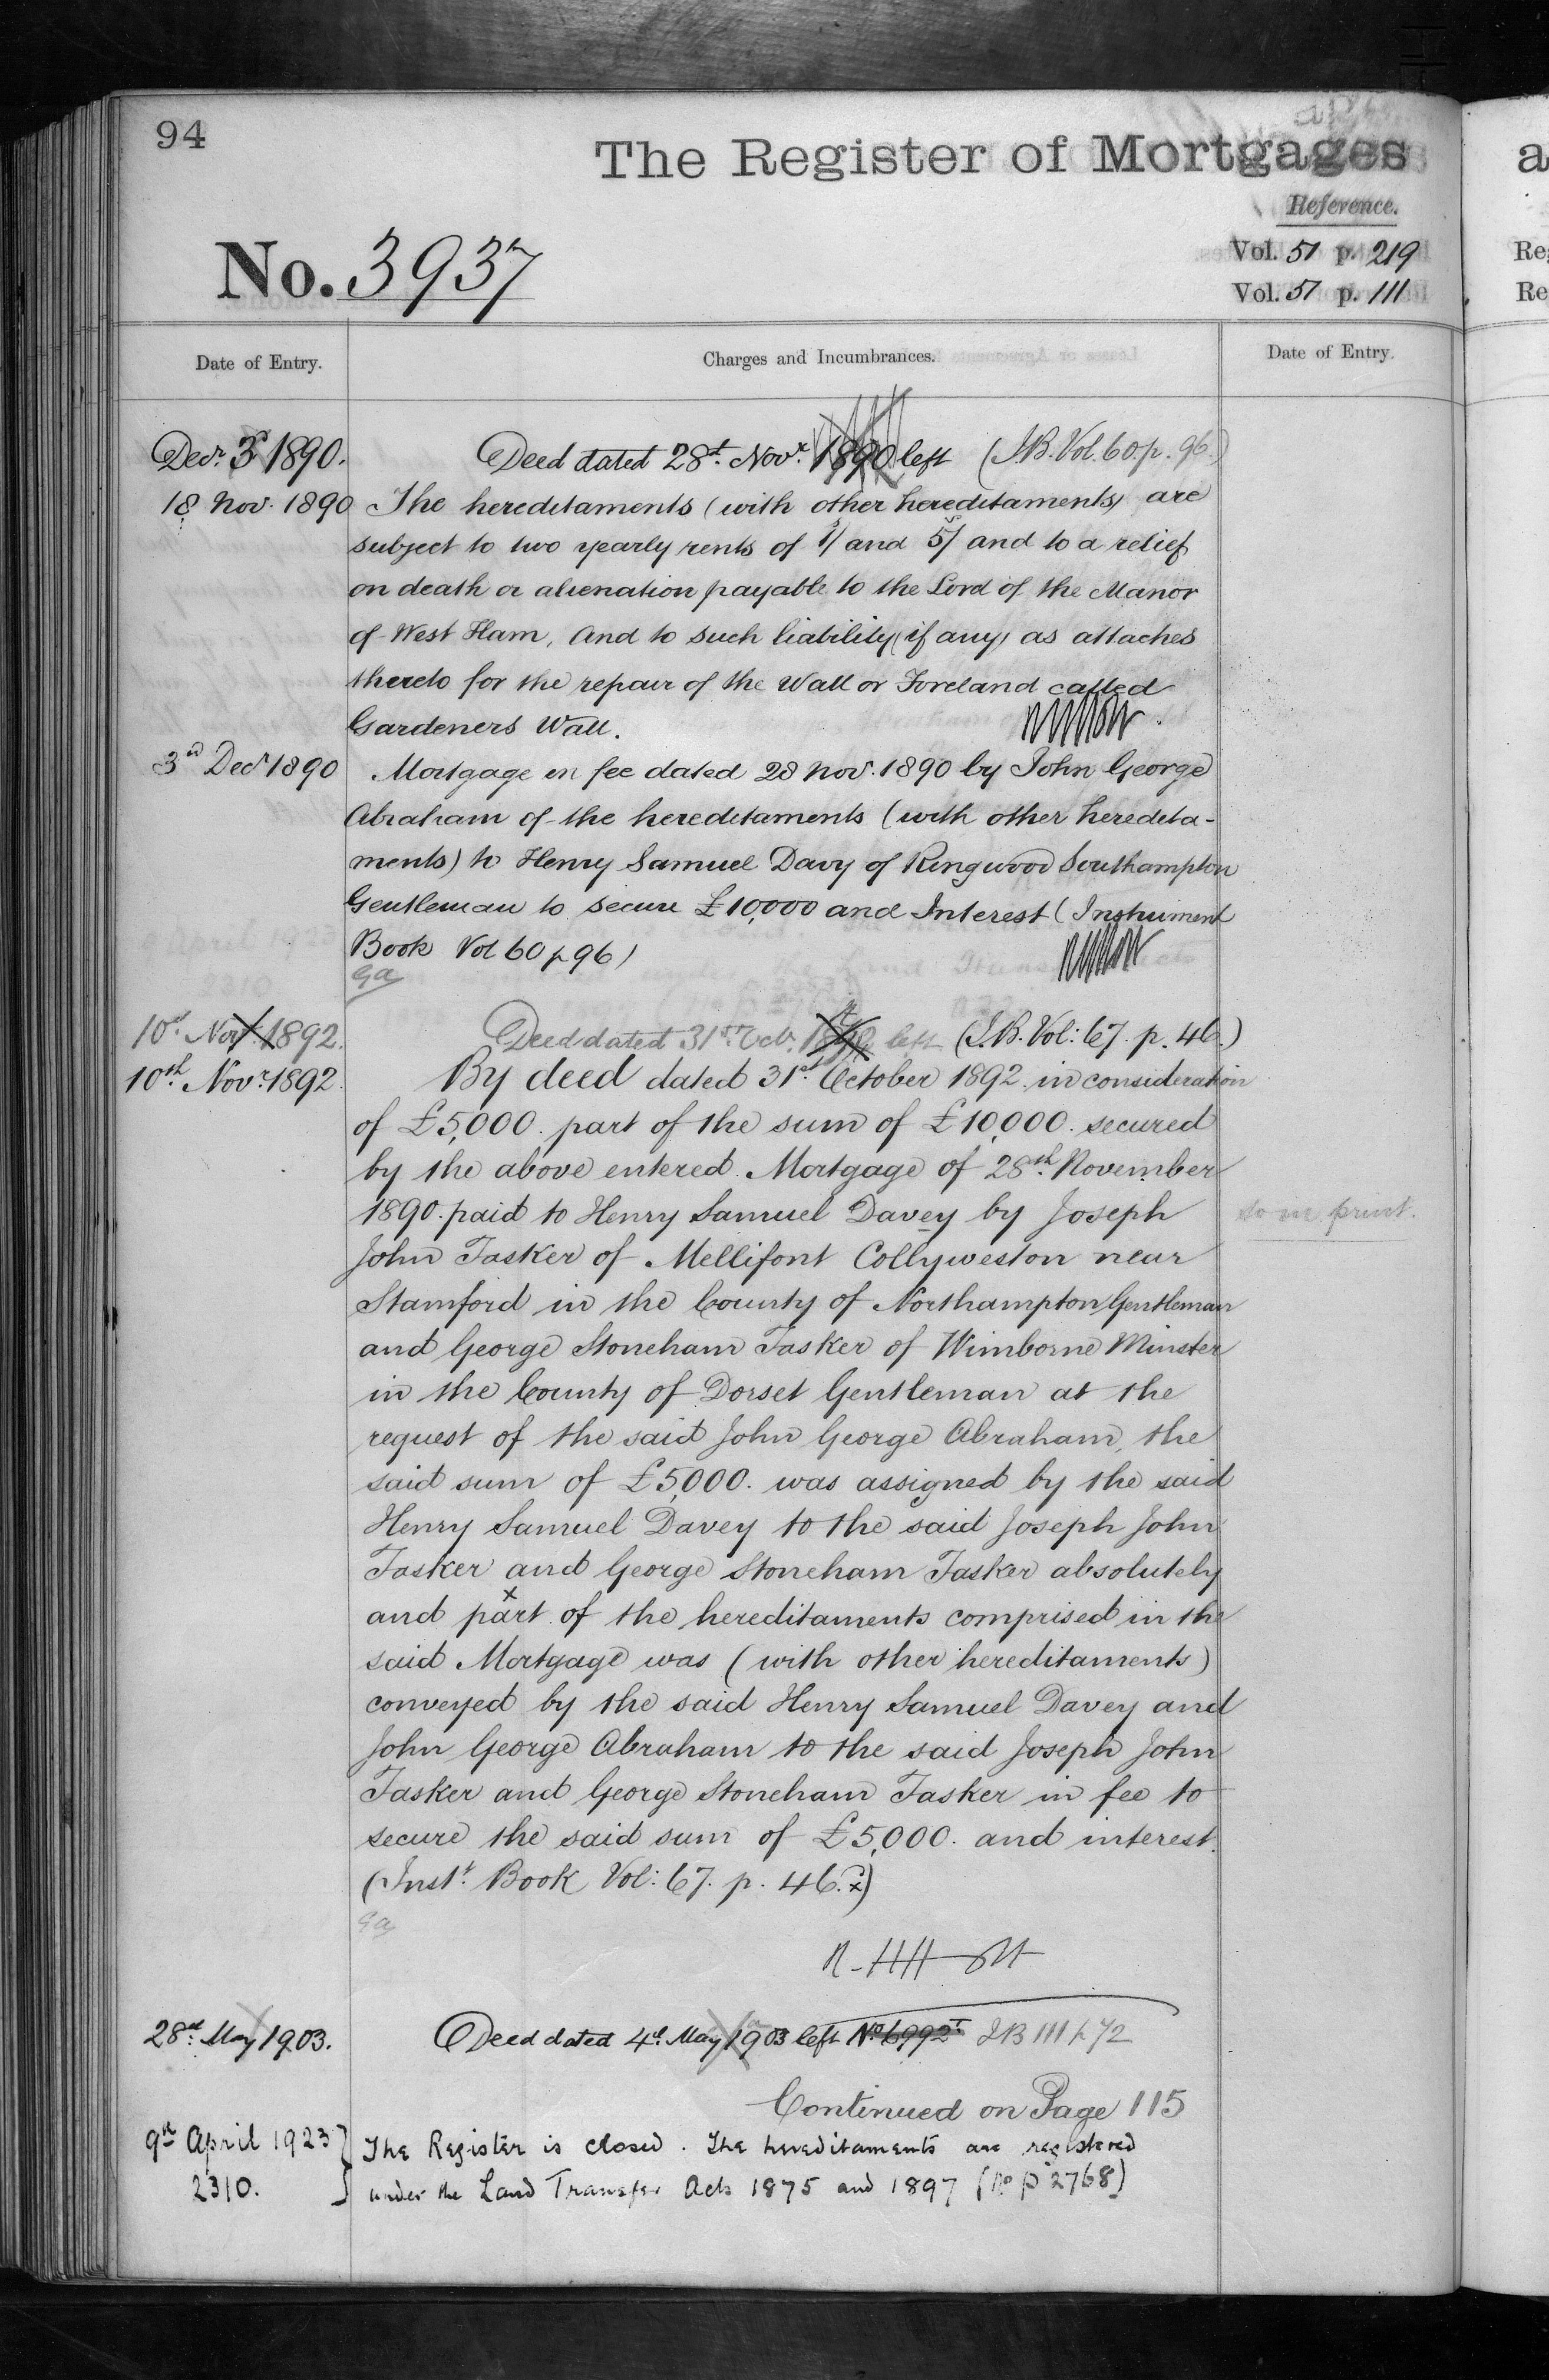 94
The Register of Mortgages
Reference.
No. 3937
Vol. 51 p. 219
Vol. 51 p. 111
Date of Entry.
Charges and Incumbrances.
Date of Entry.
Decr. 3d 1890. Deed dated 28th Novr. 1890 left (I.B. Vol. 60. p. 96.)
18 Nov. 1890 The hereditaments (with other hereditaments) are
subject to two yearly rents of 1/ and 5/ and to a relief
on death or alienation payable to the Lord of the Manor
of West Ham, and to such liability (if any) as attaches
thereto for the repair of the Wall or Foreland called
Gardeners Wall.
3d Decr 1890 Mortgage in fee dated 28 Nov. 1890 by John George
Abraham of the hereditaments (with other heredita-
ments) to Henry Samuel Davy of Ringwood Southampton
Gentleman to secure £10,000 and Interest (Instrument
Book Vol 60 p 96)
Ga
10th Novr. 1892. Deed dated 31st Octr. 1892 left (I.B. Vol: 67. p. 46.)
10th Novr. 1892. By deed dated 31st October 1892 in consideration
of £5,000. part of the sum of £10,000. secured
by the above entered Mortgage of 28th November
1890. paid to Henry Samuel Davey by Joseph
John Tasker of Mellifont Collyweston near
Stamford in the County of Northampton Gentleman
and George Stoneham Tasker of Wimborne Minster
in the County of Dorset Gentleman at the
request of the said John George Abraham, the
said sum of £5,000. was assigned by the said
Henry Samuel Davey to the said Joseph John
Tasker and George Stoneham Tasker absolutely
and part of the hereditaments comprised in the
said Mortgage was (with other hereditaments)
conveyed by the said Henry Samuel Davey and
John George Abraham to the said Joseph John
Tasker and George Stoneham Tasker in fee to
secure the said sum of £5,000. and interest.
(Instt. Book Vol: 67. p. 46.)
Ga
28th May 1903. Deed dated 4th May 1903 left No 6992 I B 111 p 72
Continued on Page 115
9th April 1923 The Register is closed. The hereditaments are registered
2310. under the Land Transfer Acts 1875 and 1897 (No P 2768)
so in
a
Re